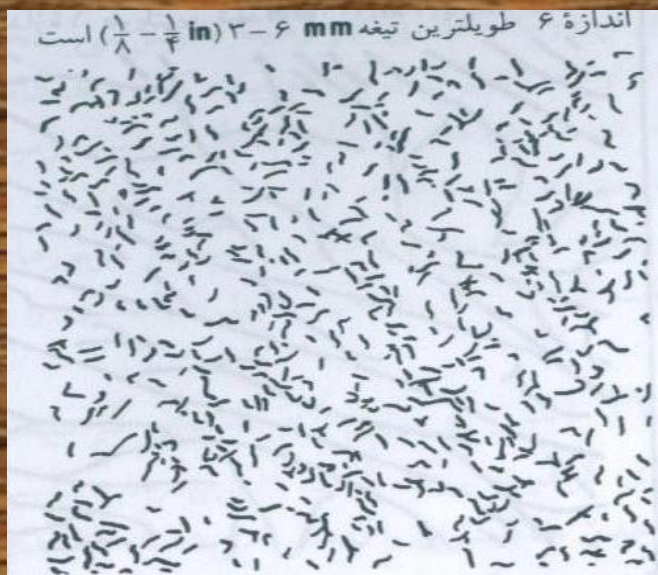 اندازهٔ ۶ طویلترین تیغه ۳ – ۶ mm (۱/۸ – ۱/۴ in) است